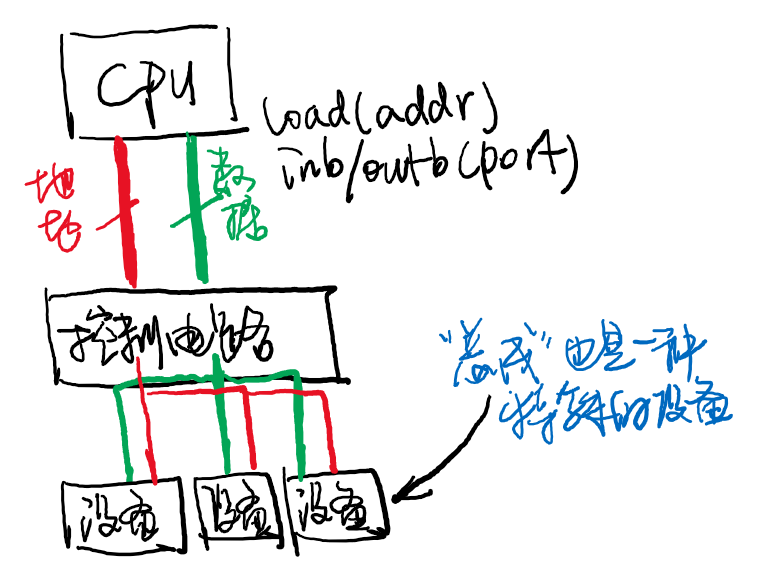 CPU
load(addr)
inb/outb(port)
地址
数据
控制电路
"总线"也是一种
特殊的设备
设备
设备
设备